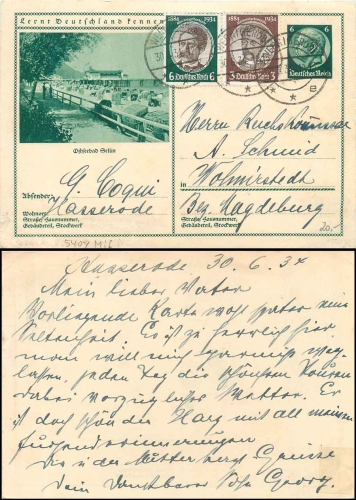 Lernt Deutschland kennen
1884 1934
6 Deutsches Reich 6
1884 1934
3 Deutsches Reich 3
6 6
Deutsches Reich
Ostseebad Sellin
Absender: G. Coqui
Wohnort: Hasserode
Straße, Hausnummer,
Gebäudeteil, Stockwerk
5404 M
Herrn
A. Schmid
in Wolmirstedt
Bez. Magdeburg
Straße, Hausnummer,
Gebäudeteil, Stockwerk
20.-
Hasserode 30.6.34
Mein lieber Vater
Vorliegende Karte wohl später eine
Seltenheit. Es ist zu herrlich hier
man will mich garnicht weg-
lassen, jeden Tag die schönsten Touren
dabei vorzügliches Wetter. Es
ist doch schön der Harz mit all meinen
Jugenderinnerungen
Dir u der Mutter herzl Grüsse
Dein dankbarer Sohn Georg.